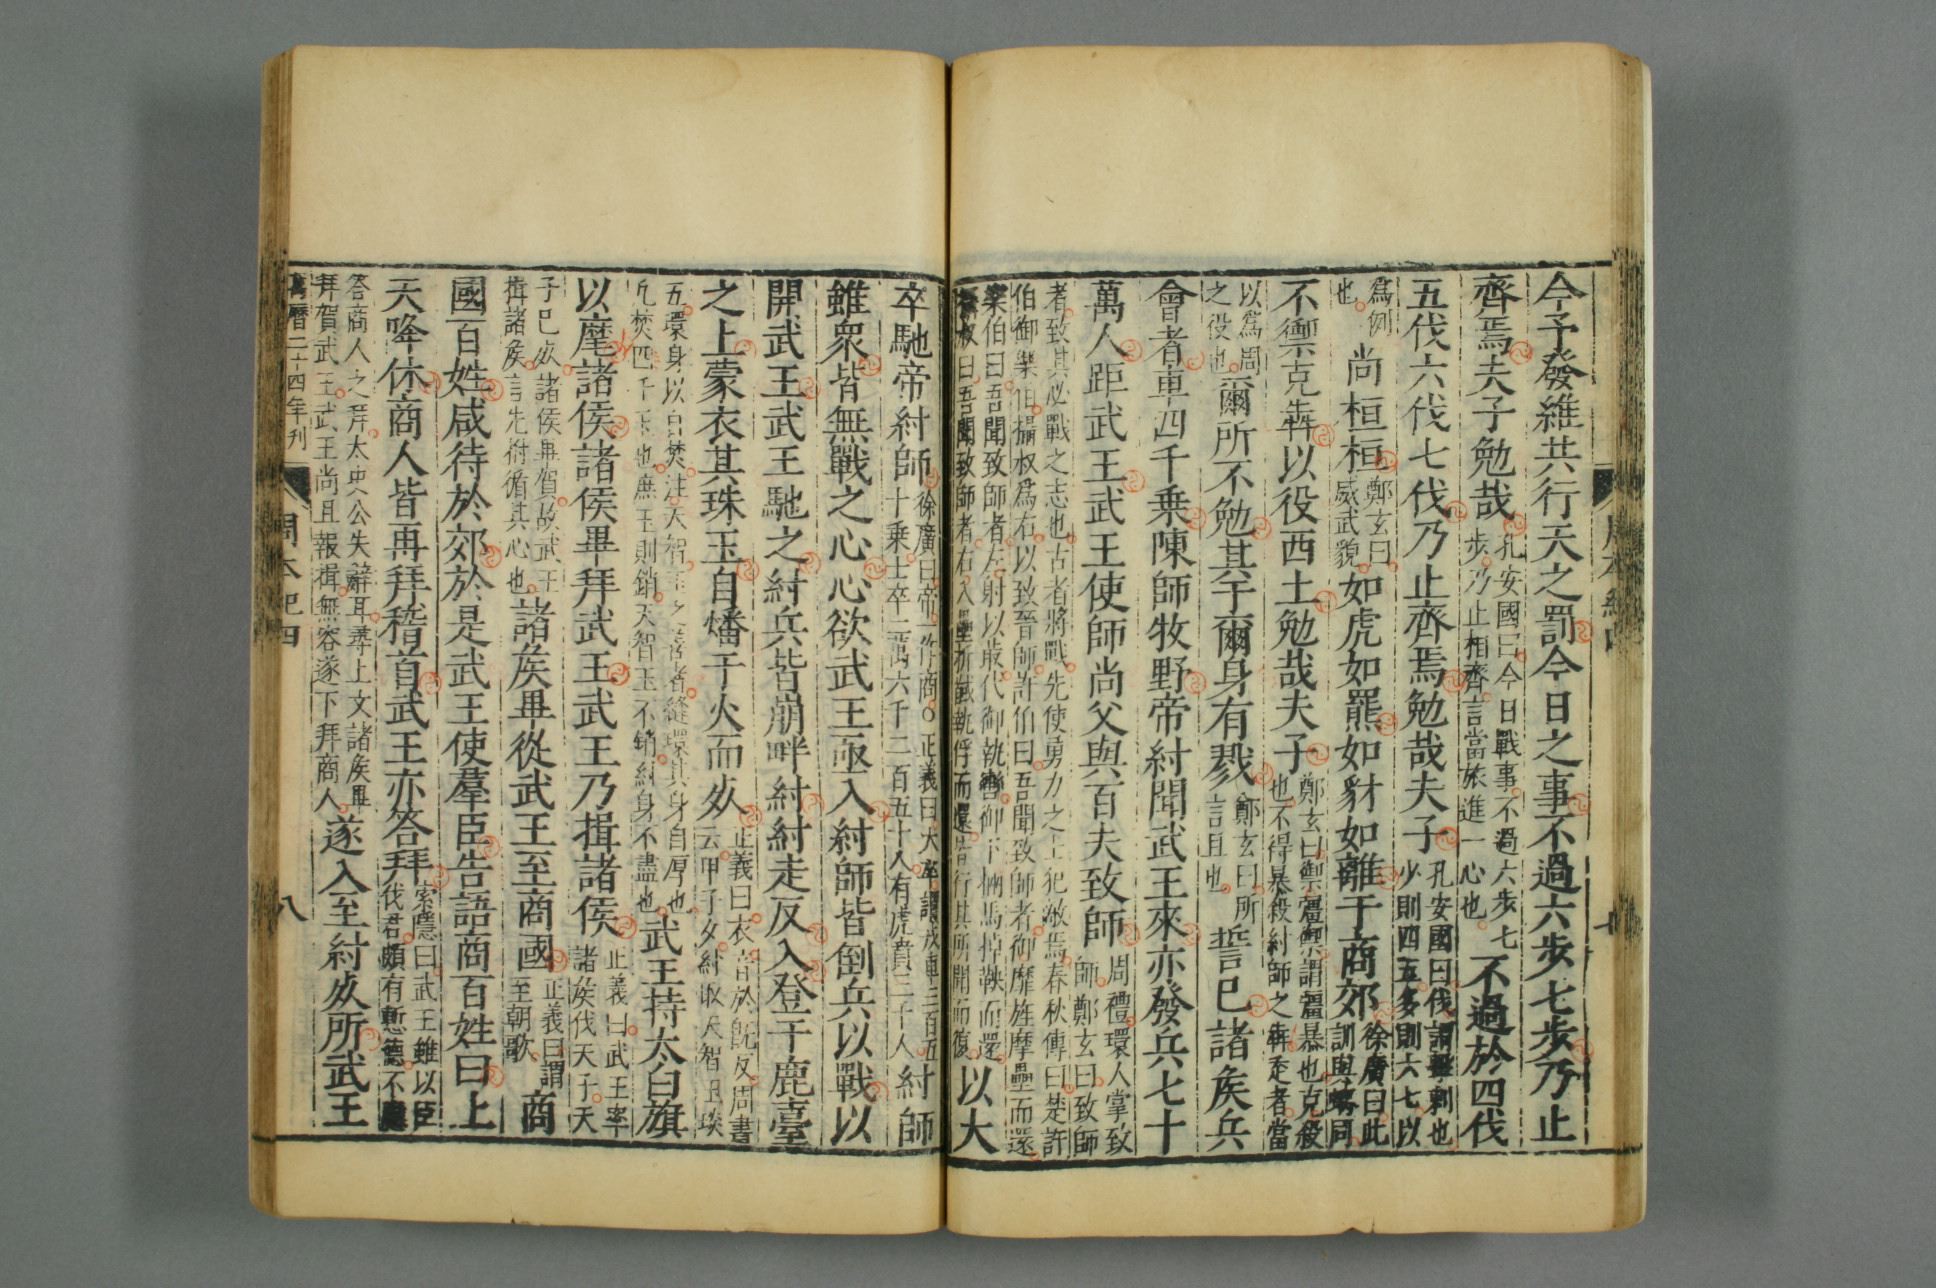 周本紀四 七
今予發維共行天之罰今日之事不過六步七步乃止
齊焉夫子勉哉孔安國曰今日戰事不過六步七步乃止相齊言當旅進一心也不過於四伐
五伐六伐七伐乃止齊焉勉哉夫子孔安國曰伐謂擊刺也少則四五多則六七以
為例也尚桓桓鄭玄曰威武貌如虎如羆如豺如離于商郊徐廣曰此訓與螭同
不禦克犇以役西土勉哉夫子鄭玄曰禦彊禦謂彊暴也克殺也不得暴殺紂師之犇走者當
以為周之役也爾所不勉其于爾身有戮鄭玄曰所言且也誓已諸矦兵
會者車四千乗陳師牧野帝紂聞武王來亦發兵七十
萬人距武王武王使師尚父與百夫致師周禮環人掌致師鄭玄曰致師
者致其必戰之志也古者將戰先使勇力之士犯敵焉春秋傳曰楚許伯御樂伯攝叔為右以致晉師許伯曰吾聞致師者御靡旌摩壘而還
樂伯曰吾聞致師者左射以菆代御執轡御下兩馬掉鞅而還攝叔曰吾聞致師者右入壘折馘執俘而還皆行其所聞而復以大
卒馳帝紂師徐廣曰帝一作商○正義曰大卒謂戎車三百五十乗士卒二萬六千二百五十人有虎賁三千人紂師
雖衆皆無戰之心心欲武王亟入紂師皆倒兵以戰以
開武王武王馳之紂兵皆崩畔紂紂走反入登于鹿臺
之上蒙衣其珠玉自燔于火而死正義曰衣音於旣反周書云甲子夕紂取天智玉琰
五環身以自焚注天智玉之善者縫環其身自厚也凡焚四千玉也庶玉則銷天智玉不銷紂身不盡也武王持太白旗
以麾諸侯諸侯畢拜武王武王乃揖諸侯正義曰武王率諸矦伐天子天
子已死諸侯畢賀故武王揖諸矦言先拊循其心也諸矦畢從武王至商國正義曰謂至朝歌商
國百姓咸待於郊於是武王使羣臣告語商百姓曰上
天降休商人皆再拜稽首武王亦答拜索隱曰武王雖以臣伐君頗有慙德不應
答商人之拜太史公失辭耳尋上文諸矦畢拜賀武王武王尚且報揖無容遂下拜商人遂入至紂死所武王
萬曆二十四年刊 周本紀四 八